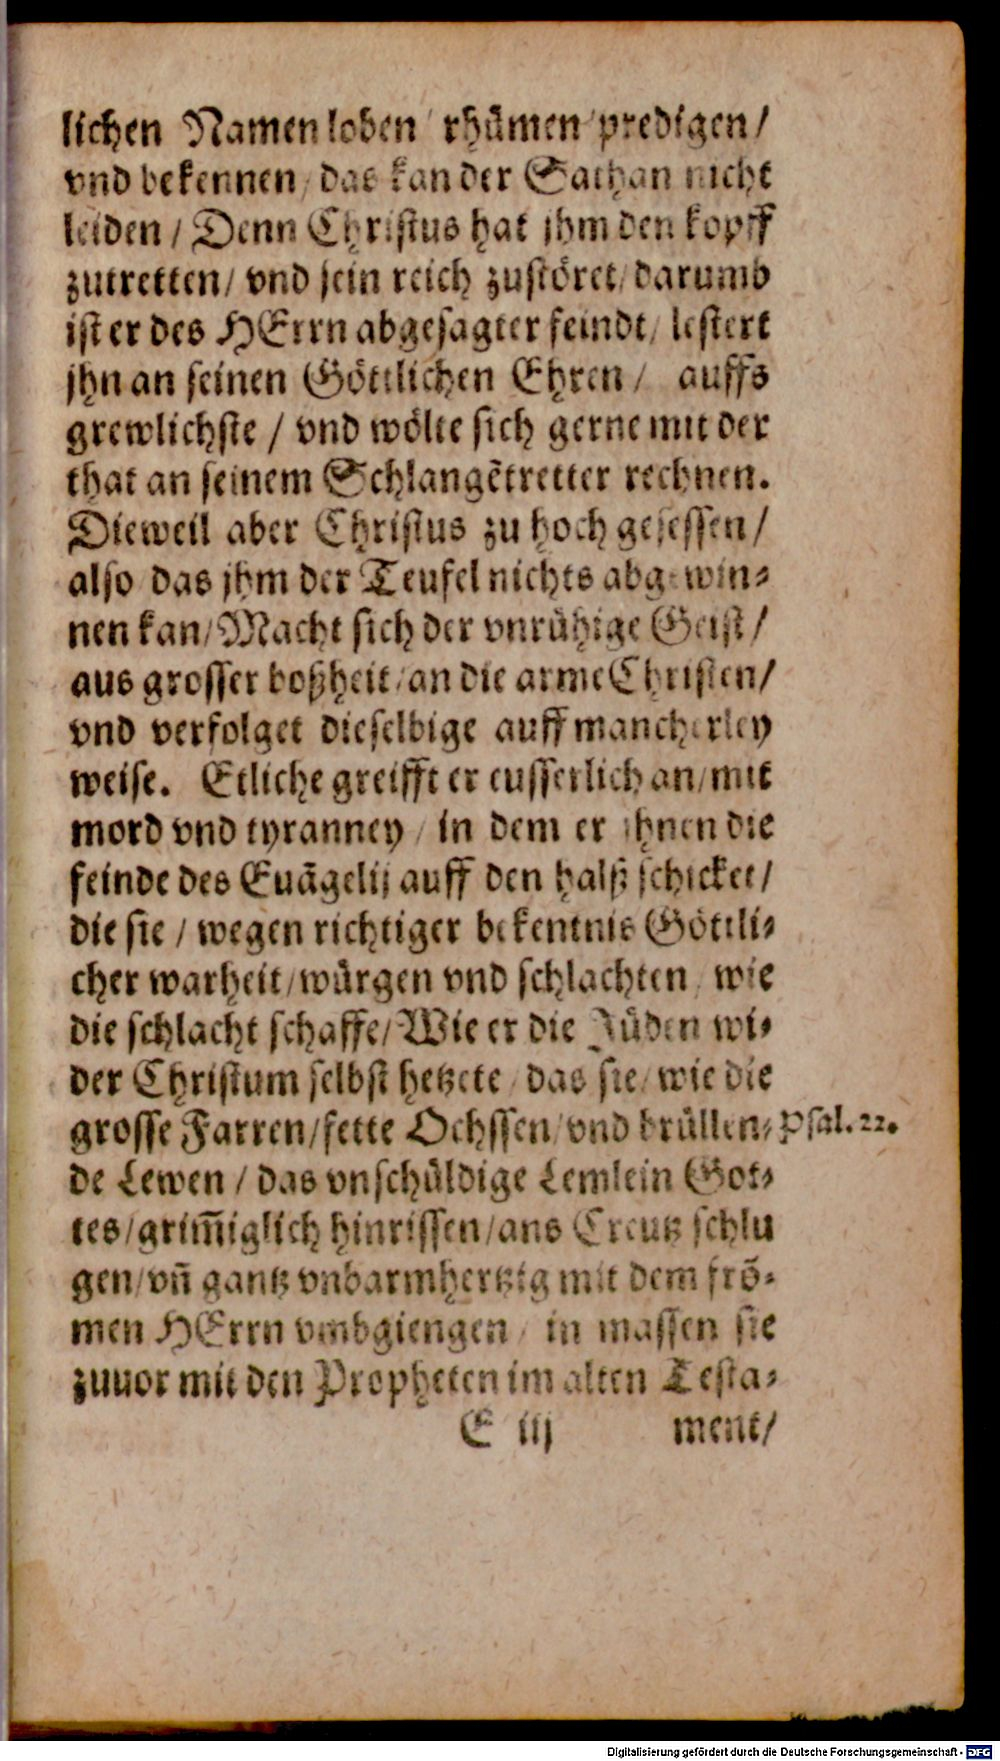 lichen Namen loben / rhümen / predigen /
vnd bekennen / das kan der Sathan nicht
leiden / Denn Christus hat jhm den kopff
zutretten / vnd sein reich zustöret / darumb
ist er des HErrn abgesagter feindt / lestert
jhn an seinen Göttlichen Ehren / auffs
grewlichste / vnd wölte sich gerne mit der
that an seinem Schlangẽtretter rechnen.
Dieweil aber Christus zu hoch gesessen /
also das jhm der Teufel nichts abgewin-
nen kan / Macht sich der vnrühige Geist /
aus grosser boßheit / an die arme Christen /
vnd verfolget dieselbige auff mancherley
weise. Etliche greifft er eusserlich an / mit
mord vnd tyranney / in dem er ihnen die
feinde des Euãgelij auff den halß schicket /
die sie / wegen richtiger bekentnis Göttli-
cher warheit / würgen vnd schlachten / wie
die schlacht schaffe / Wie er die Jüden wi-
der Christum selbst hetzete / das sie / wie die
grosse Farren / fette Ochssen / vnd brüllen- Psal. 22.
de Lewen / das vnschüldige Lemlein Got-
tes / grim̃iglich hinrissen / ans Creutz schlu
gen / vñ gantz vnbarmhertzig mit dem frö-
men HErrn vmbgiengen / in massen sie
zuuor mit den Propheten im alten Testa-
E iij ment /
Digitalisierung gefördert durch die Deutsche Forschungsgemeinschaft - DFG